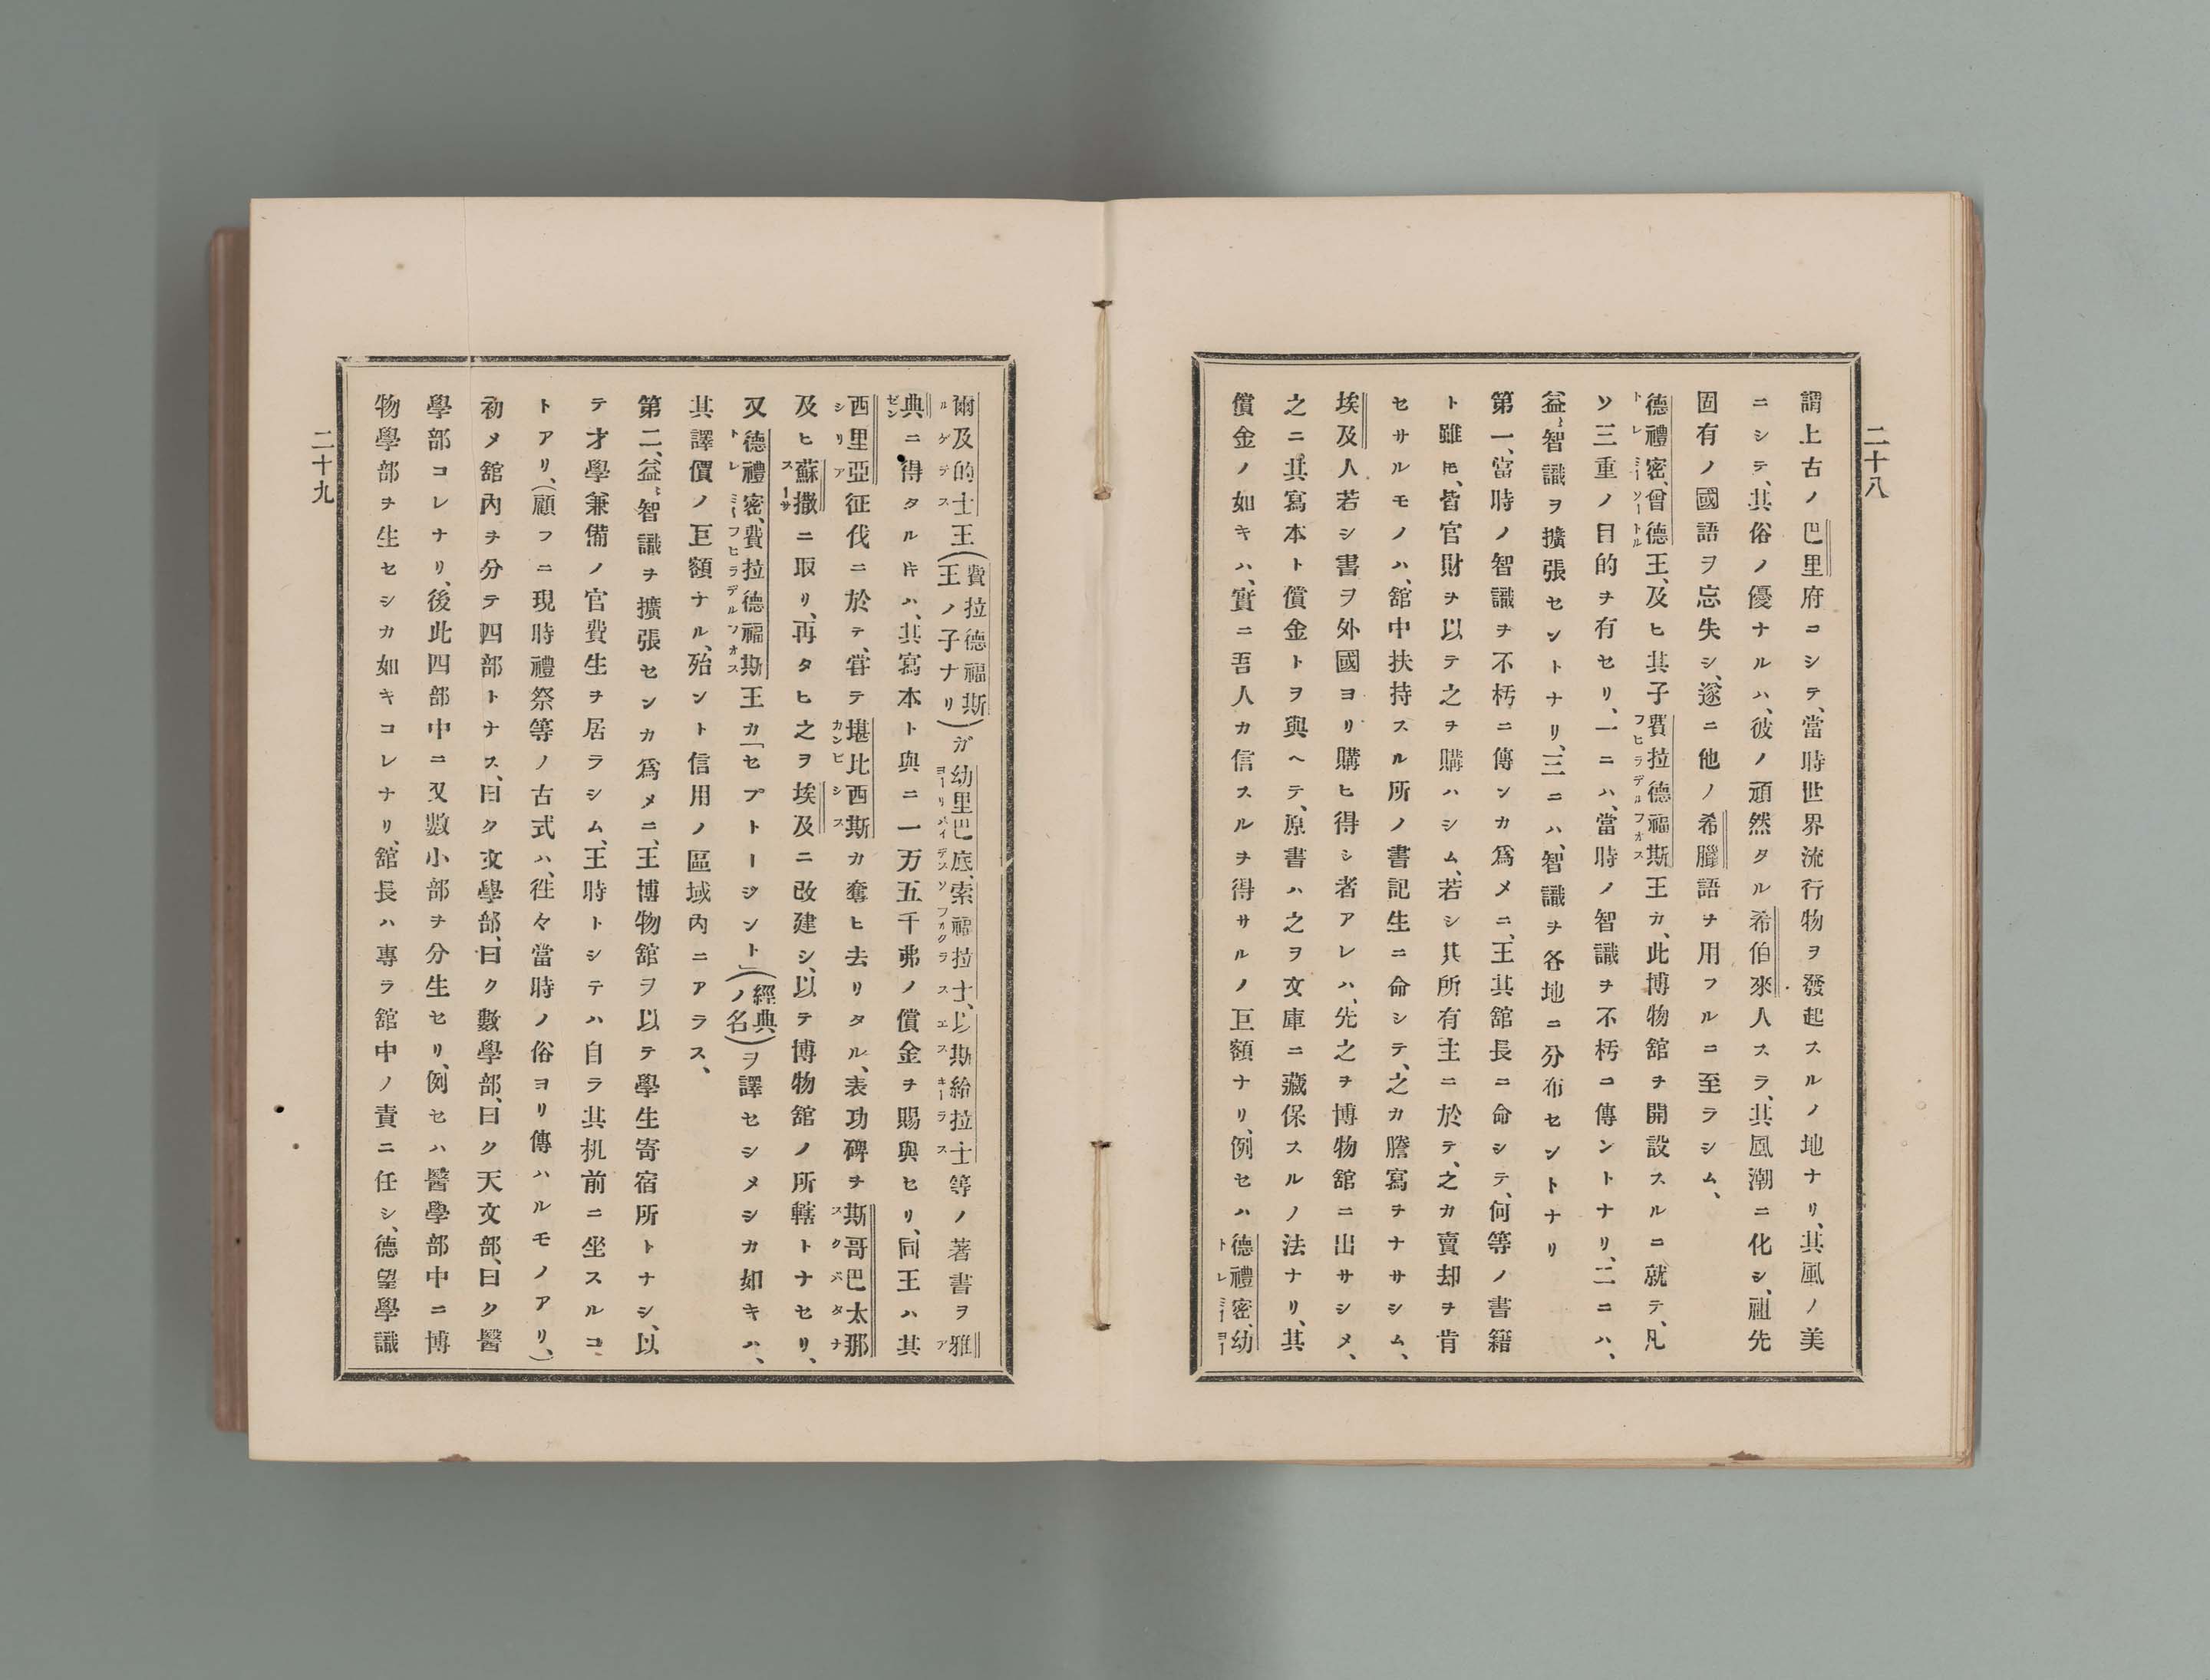 二十八
謂上古ノ巴里府ニシテ、當時世界流行物ヲ發起スルノ地ナリ、其風ノ美
ニシテ、其俗ノ優ナルハ、彼ノ頑然タル希伯來人スラ、其風潮ニ化シ、祖先
固有ノ國語ヲ忘失シ、遂ニ他ノ希臘語ヲ用フルニ至ラシム、
德禮密、曾德王、及ヒ其子費拉德福斯王カ、此博物舘ヲ開設スルニ就テ、凡
トレミーソートル フヒラデルフオス
ソ三重ノ目的ヲ有セリ、一ニハ、當時ノ智識ヲ不朽ニ傳ントナリ、二ニハ、
益〻智識ヲ擴張セントナリ、三ニハ、智識ヲ各地ニ分布セントナリ
第一、當時ノ智識ヲ不朽ニ傳ンカ爲メニ、王其舘長ニ命シテ、何等ノ書籍
ト雖𪜈、皆官財ヲ以テ之ヲ購ハシム、若シ其所有主ニ於テ、之カ賣却ヲ肯
セサルモノハ、舘中扶持スル所ノ書記生ニ命シテ、之カ謄寫ヲナサシム、
埃及人若シ書ヲ外國ヨリ購ヒ得シ者アレハ、先之ヲ博物舘ニ出サシメ、
之ニ其寫本ト償金トヲ與ヘテ、原書ハ之ヲ文庫ニ藏保スルノ法ナリ、其
償金ノ如キハ、實ニ吾人カ信スルヲ得サルノ巨額ナリ、例セハ德禮密、幼
トレミーヨー
爾及的士王(費拉德福斯王ノ子ナリ)ガ幼里巴底、索福拉士、以斯給拉士等ノ著書ヲ雅
ルゲテス ヨーリパイデスソフオクラスエスキーラス ア
典ニ得タル片ハ、其寫本ト與ニ一万五千弗ノ償金ヲ賜與セリ、同王ハ其
ゼン
西里亞征伐ニ於テ、甞テ堪比西斯カ奪ヒ去リタル、表功碑ヲ斯哥巴太那
シリア カンビシス スクバタナ
及ヒ蘇撒ニ取リ、再タヒ之ヲ埃及ニ改建シ、以テ博物舘ノ所轄トナセリ、
スーサ
又德禮密、費拉德福斯王カ「セプトージント」(經典ノ名)ヲ譯セシメシカ如キハ、
トレミーフヒラデルフオス
其譯價ノ巨額ナル、殆ント信用ノ區域內ニアラス、
第二、益〻智識ヲ擴張センカ爲メニ、王博物舘ヲ以テ學生寄宿所トナシ、以
テ才學兼備ノ官費生ヲ居ラシム、王時トシテハ自ラ其机前ニ坐スルコ
トアリ、(顧フニ現時禮祭等ノ古式ハ、徃々當時ノ俗ヨリ傳ハルモノアリ、)
初メ舘內ヲ分テ四部トナス、曰ク文學部、曰ク數學部、曰ク天文部、曰ク醫
學部コレナリ、後此四部中ニ又數小部ヲ分生セリ、例セハ醫學部中ニ博
物學部ヲ生セシカ如キコレナリ、舘長ハ專ラ舘中ノ責ニ任シ、德望學識
二十九